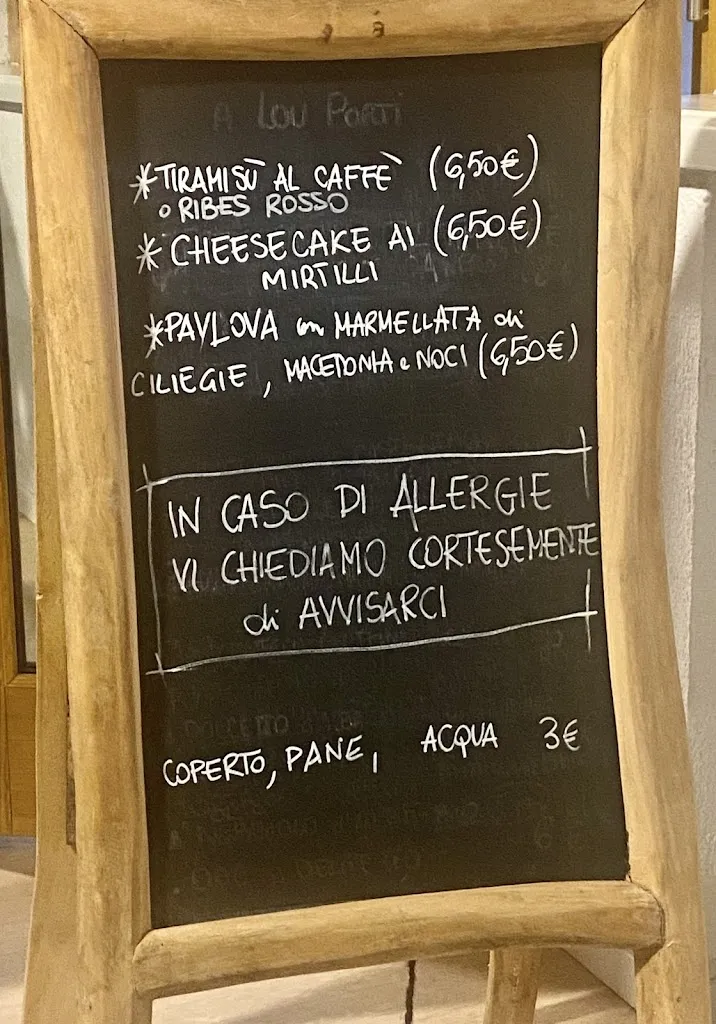 A Lou Porti
*TIRAMISÙ AL CAFFÈ (6,50€)
o RIBES ROSSO
*CHEESECAKE AI (6,50€)
MIRTILLI
*PAVLOVA con MARMELLATA di
CILIEGIE, MACEDONIA e NOCI (6,50€)
IN CASO DI ALLERGIE
VI CHIEDIAMO CORTESEMENTE
di AVVISARCI
COPERTO, PANE, ACQUA 3€